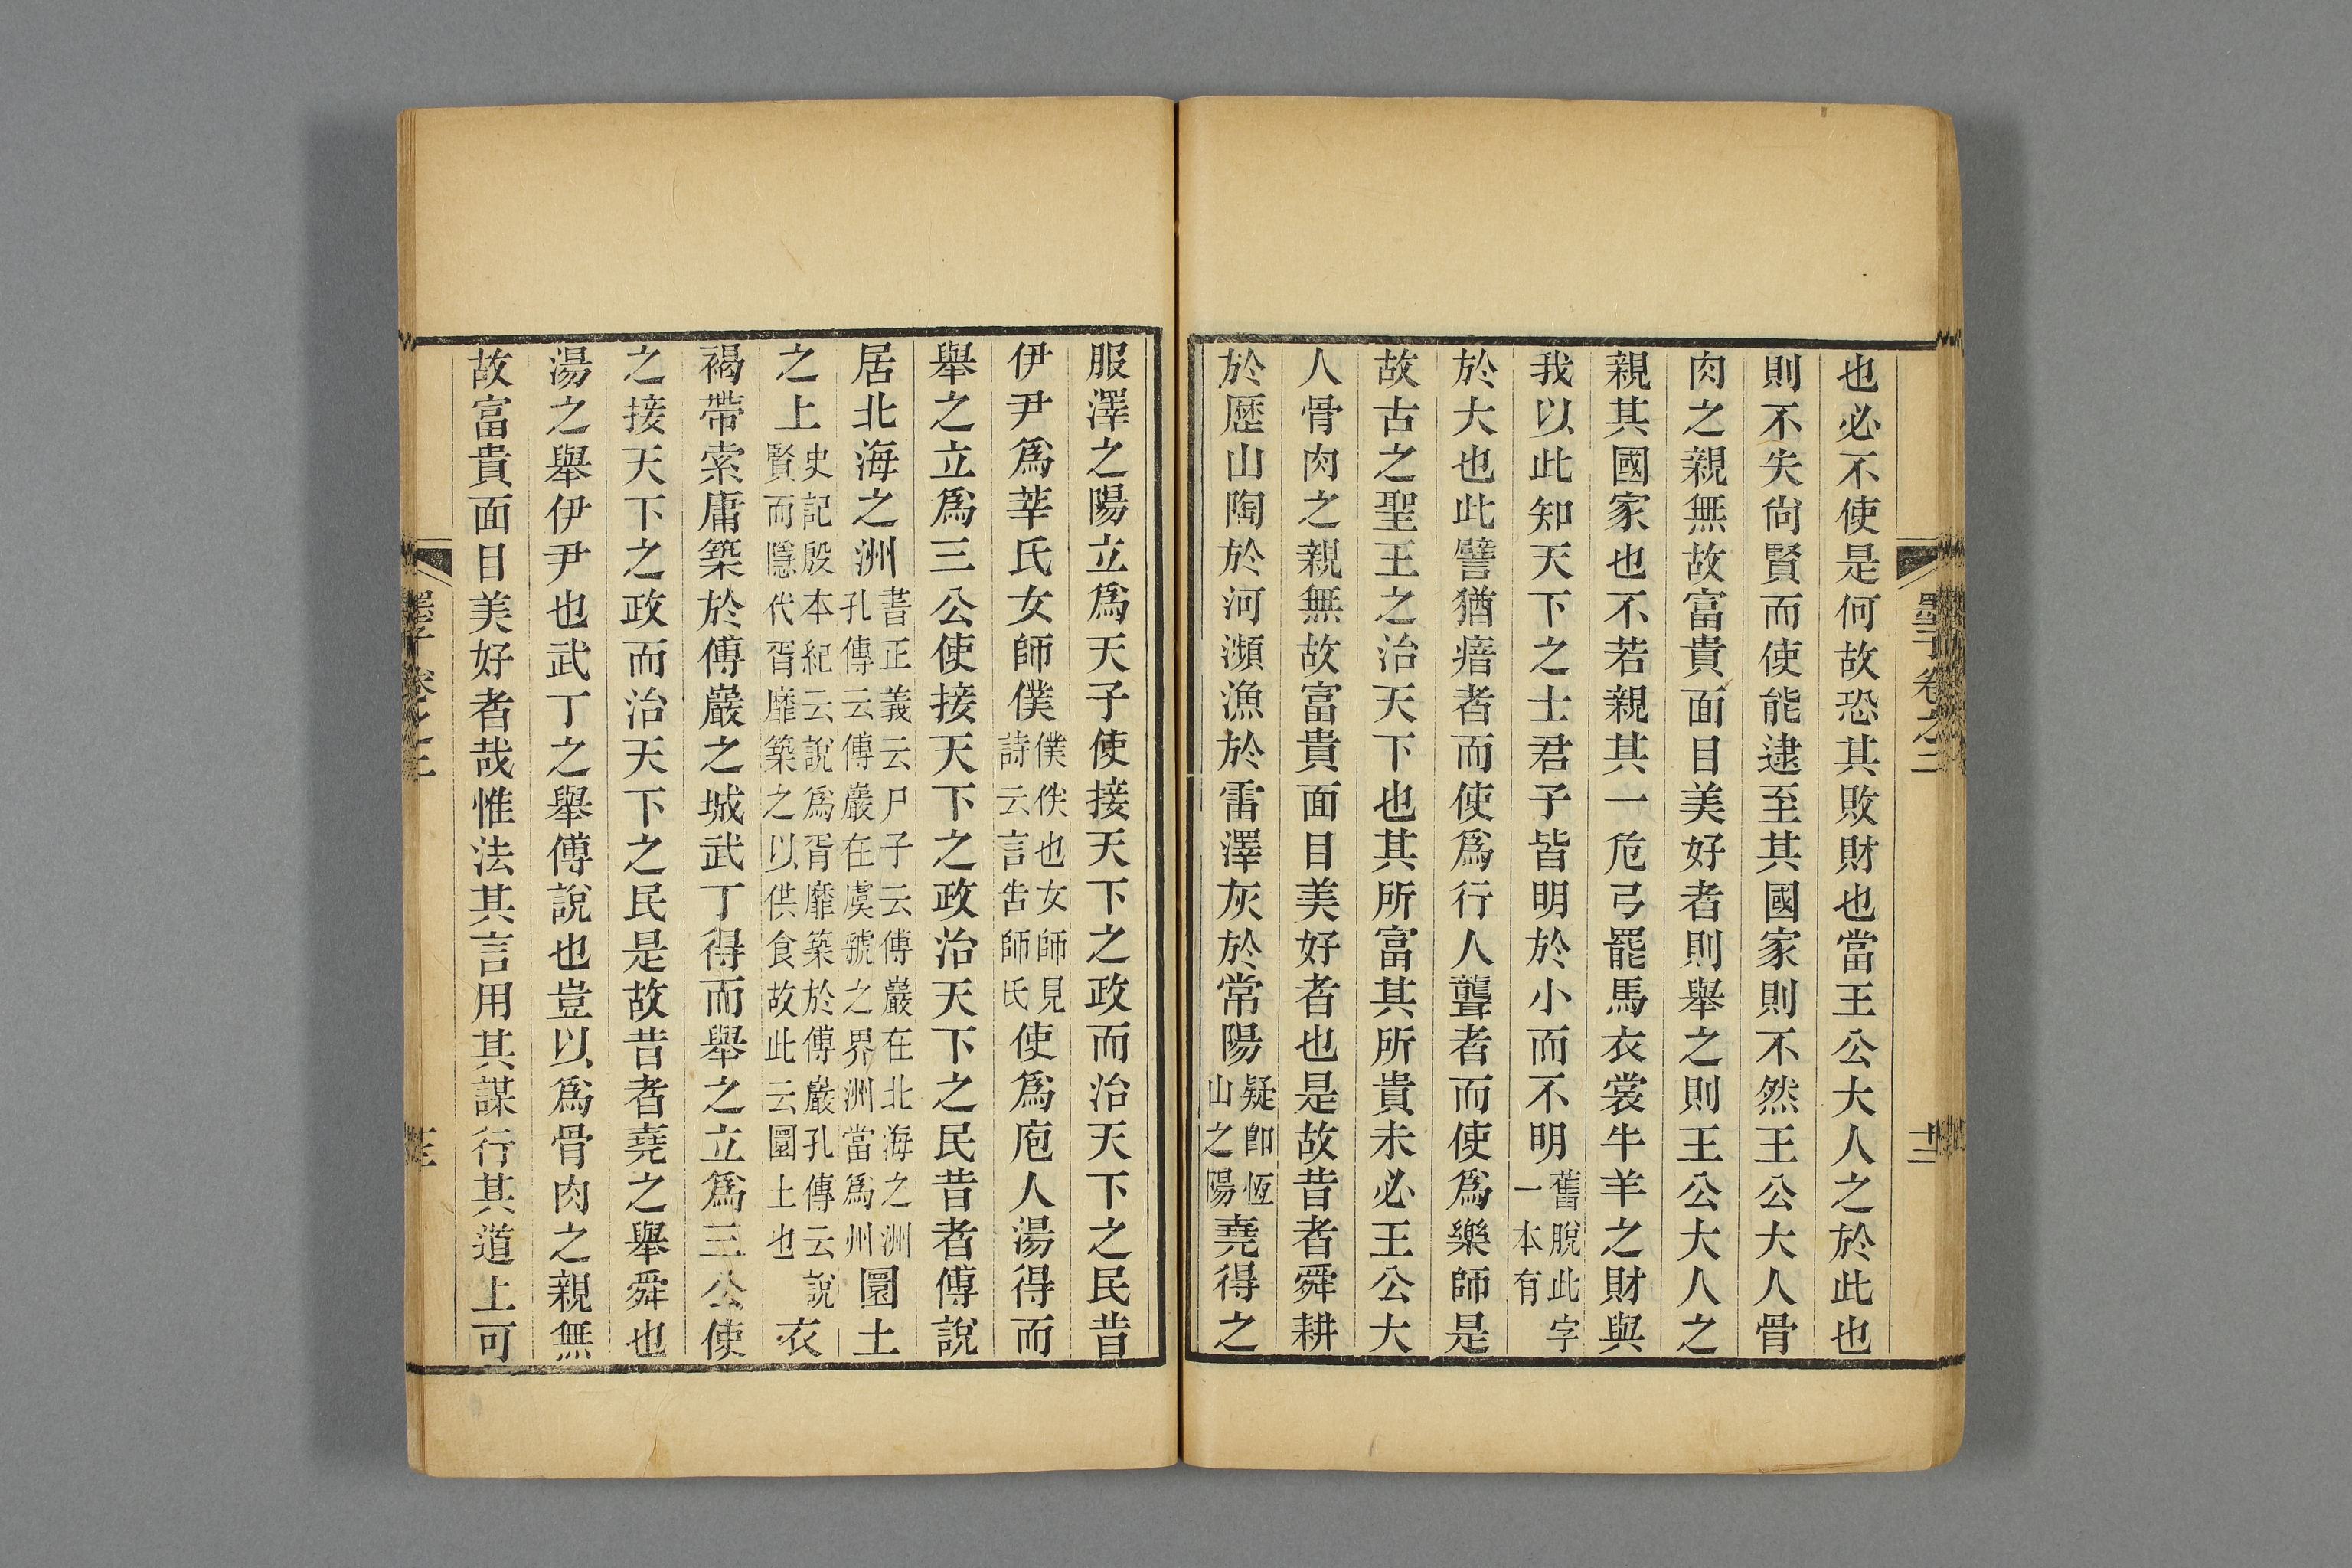 墨子卷之二
十二
也必不使是何故恐其敗財也當王公大人之於此也
則不失尙賢而使能逮至其國家則不然王公大人骨
肉之親無故富貴面目美好者則舉之則王公大人之
親其國家也不若親其一危弓罷馬衣裳牛羊之財與
我以此知天下之士君子皆明於小而不明舊脫此字一本有
於大也此譬猶瘖者而使爲行人聾者而使爲樂師是
故古之聖王之治天下也其所富其所貴未必王公大
人骨肉之親無故富貴面目美好者也是故昔者舜耕
於歷山陶於河瀕漁於雷澤灰於常陽疑卽恆山之陽堯得之
服澤之陽立爲天子使接天下之政而治天下之民昔
伊尹爲莘氏女師僕僕佚也女師見詩云言吿師氏使爲庖人湯得而
舉之立爲三公使接天下之政治天下之民昔者傅說
居北海之洲書正義云尸子云傅巖在北海之洲孔傳云傅巖在虞虢之界洲當爲州圜土
之上史記殷本紀云說爲胥靡築於傅巖孔傳云說賢而隱代胥靡築之以供食故此云圜上也衣
褐帶索庸築於傅巖之城武丁得而舉之立爲三公使
之接天下之政而治天下之民是故昔者堯之舉舜也
湯之舉伊尹也武丁之舉傅說也豈以爲骨肉之親無
故富貴面目美好者哉惟法其言用其謀行其道上可
墨子卷之二
十三